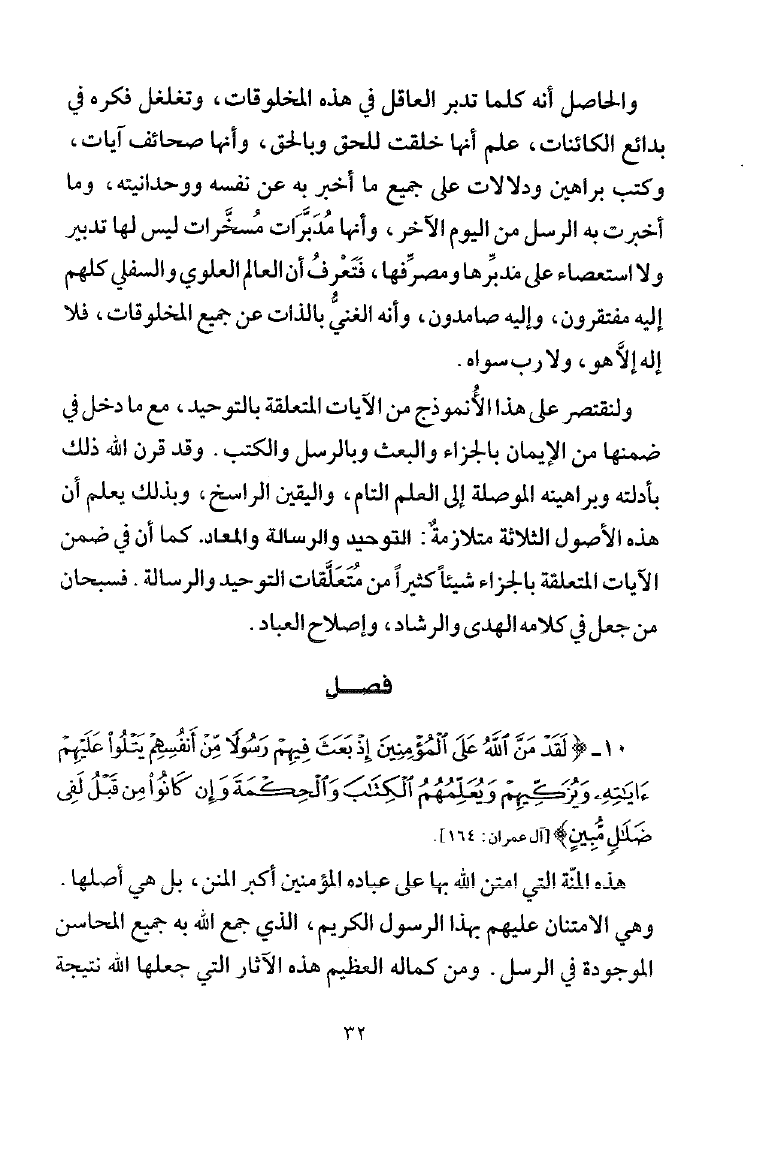 والحاصل أنه كلما تدبر العاقل في هذه المخلوقات، وتغلغل فكره في
بدائع الكائنات، علم أنها خلقت للحق وبالحق، وأنها صحائف آيات،
وكتب براهين ودلالات على جميع ما أخبر به عن نفسه ووحدانيته، وما
أخبرت به الرسل من اليوم الآخر، وأنها مُدَبَّرَات مُسخَّرات ليس لها تدبير
ولا استعصاء على مدبرِّها ومصرفِّها، فَتَعْرِفُ أن العالم العلوي والسفلي كلهم
إليه مفتقرون، وإليه صامدون، وأنه الغنيُّ بالذات عن جميع المخلوقات، فلا
إله إلاَّ هو، ولا رب سواه.
ولنقتصر على هذا الأُنموذج من الآيات المتعلقة بالتوحيد، مع ما دخل في
ضمنها من الإيمان بالجزاء والبعث وبالرسل والكتب. وقد قرن الله ذلك
بأدلته وبراهينه الموصلة إلى العلم التام، واليقين الراسخ، وبذلك يعلم أن
هذه الأصول الثلاثة متلازمةٌ: التوحيد والرسالة والمعاد. كما أن في ضمن
الآيات المتعلقة بالجزاء شيئاً كثيراً من مُتَعَلَّقات التوحيد والرسالة. فسبحان
من جعل في كلامه الهدى والرشاد، وإصلاح العباد.
فصــل
١٠ـ ﴿لَقَدْ مَنَّ ٱللَّهُ عَلَى ٱلْمُؤْمِنِينَ إِذْ بَعَثَ فِيهِمْ رَسُولًا مِّنْ أَنفُسِهِمْ يَتْلُوا۟ عَلَيْهِمْ
ءَايَـٰتِهِۦ وَيُزَكِّيهِمْ وَيُعَلِّمُهُمُ ٱلْكِتَـٰبَ وَٱلْحِكْمَةَ وَإِن كَانُوا۟ مِن قَبْلُ لَفِى
ضَلَـٰلٍ مُّبِينٍ﴾ [آل عمران: ١٦٤].
هذه المنَّة التي امتن الله بها على عباده المؤمنين أكبر المنن، بل هي أصلها.
وهي الامتنان عليهم بهذا الرسول الكريم، الذي جمع الله به جميع المحاسن
الموجودة في الرسل. ومن كماله العظيم هذه الآثار التي جعلها الله نتيجة
٣٢